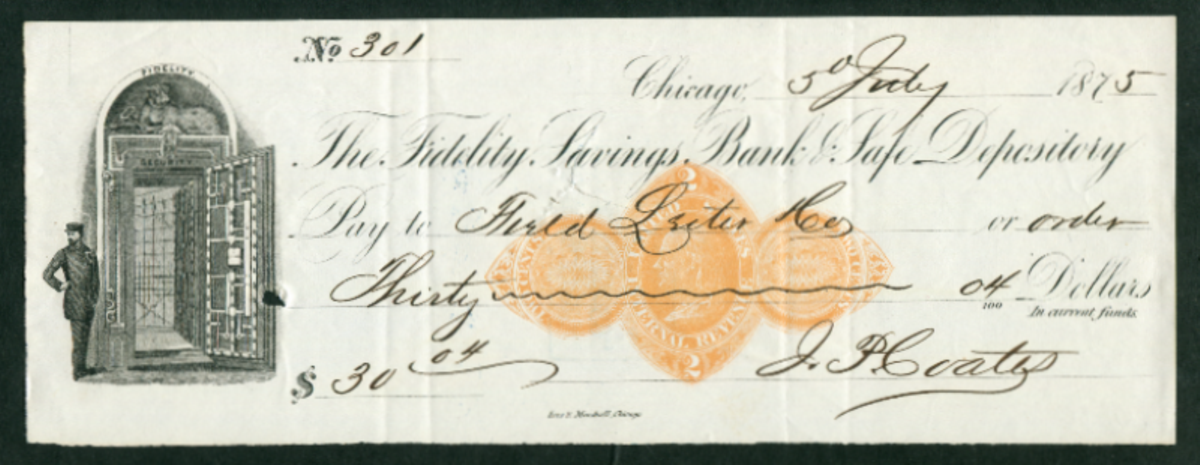 No 301
Chicago, 5th July 1875
FIDELITY
SECURITY
The Fidelity Savings Bank & Safe Depository
Pay to Field Leiter & Co or order
Thirty 04/100 Dollars
In current funds.
$ 30 04
J. P. Coates
2
INTERNAL REVENUE
2
Chicago